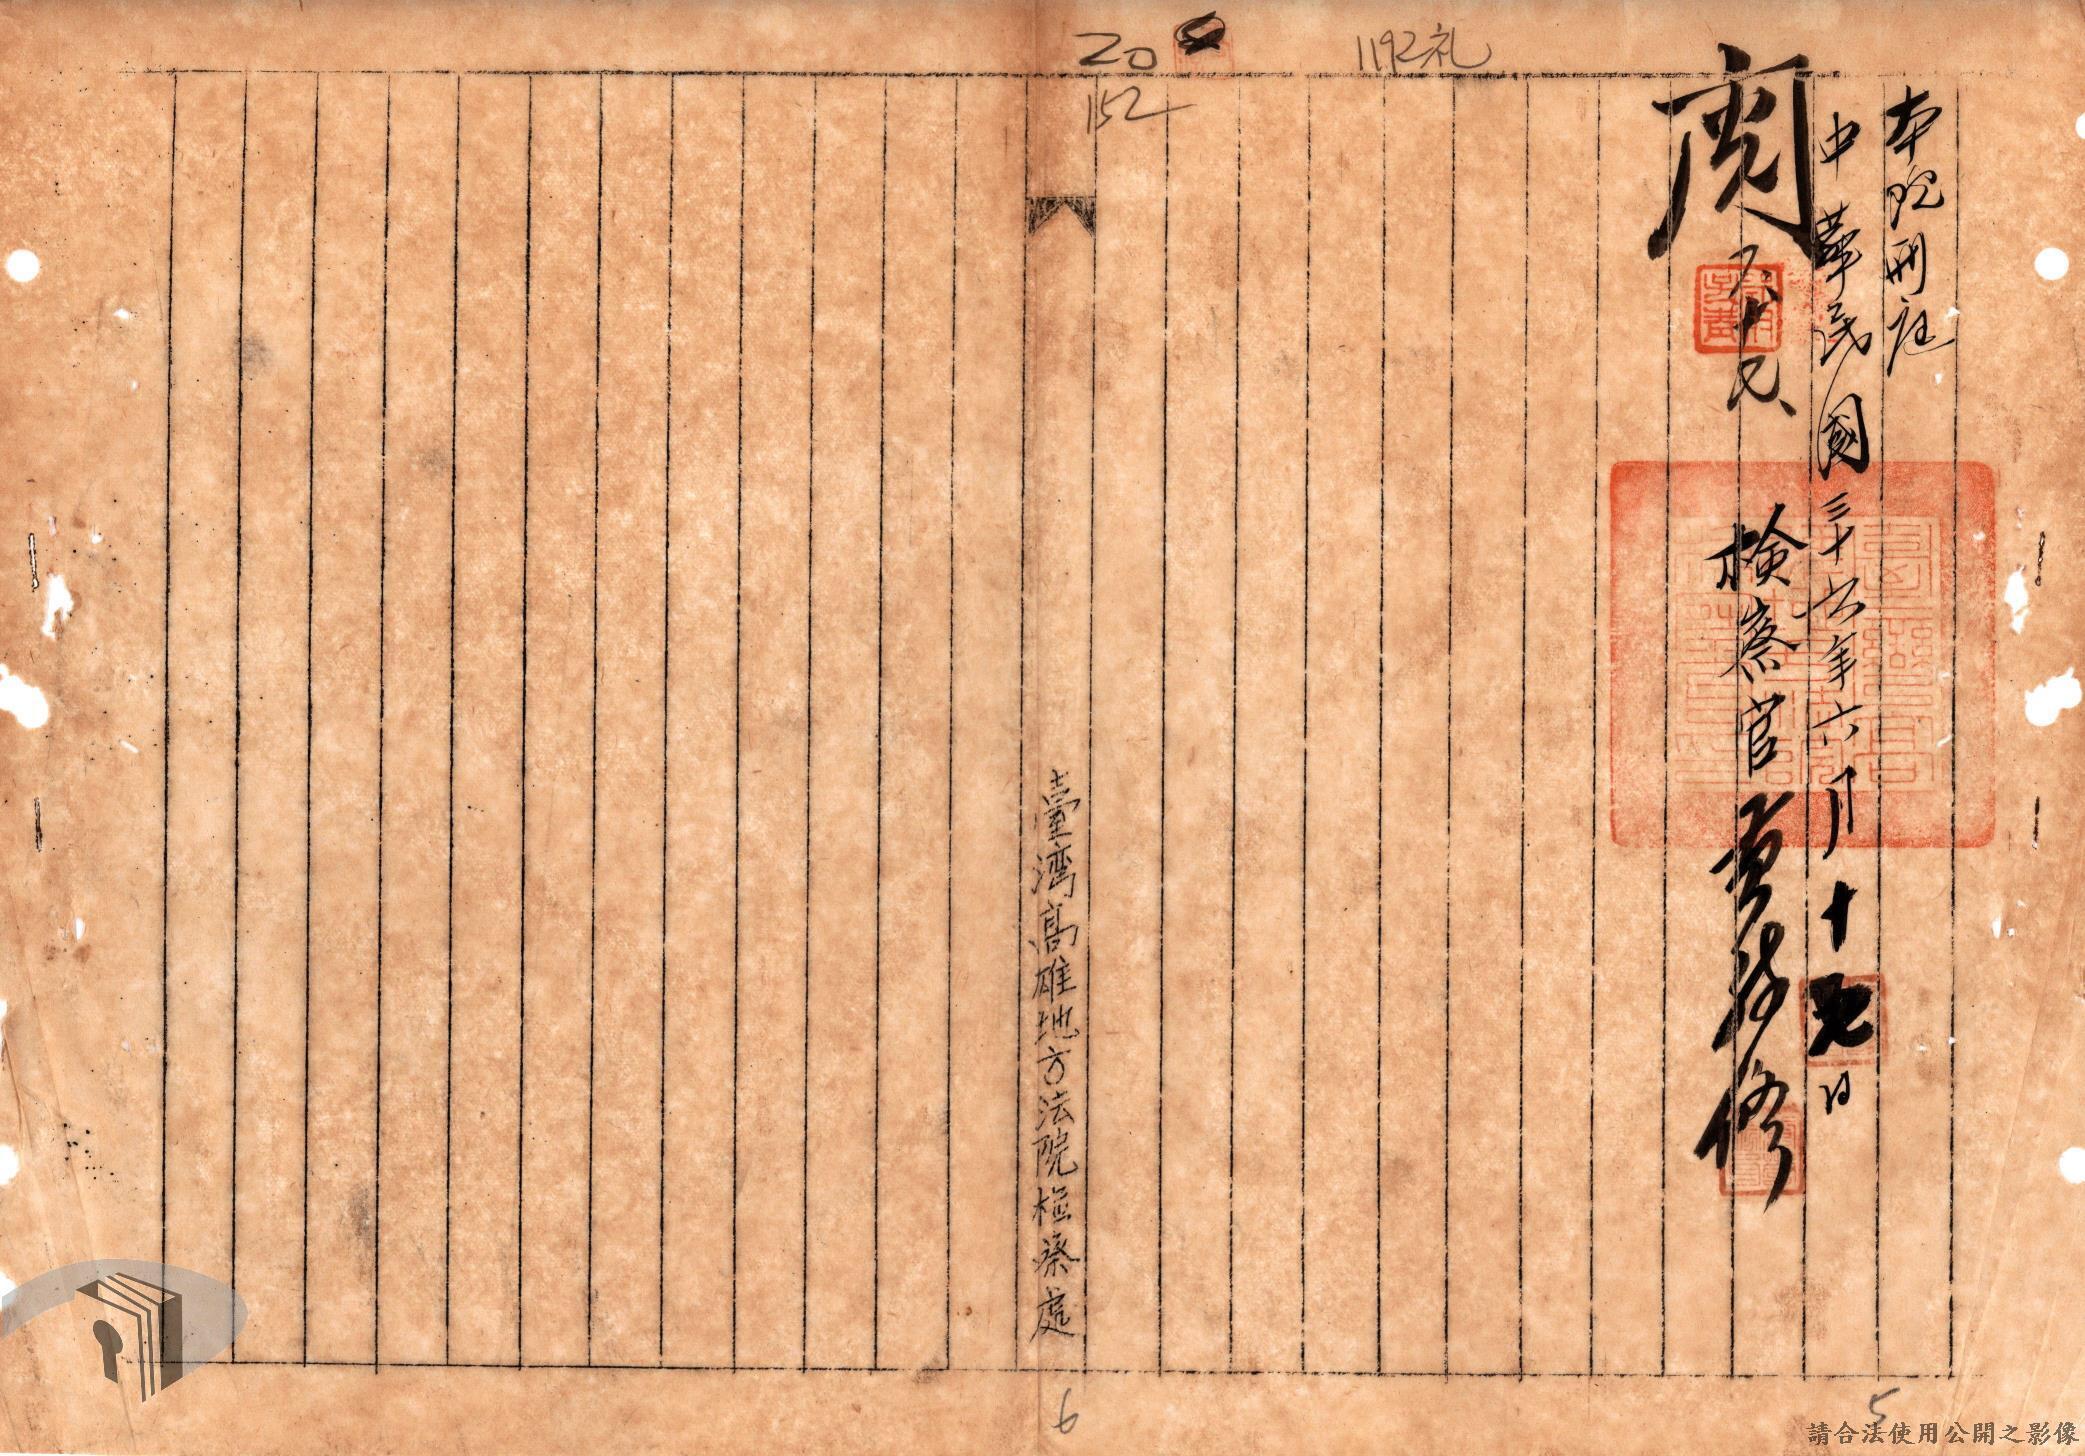 本院刑庭
中華民國三十六年六月十九日
檢察官
閱
六
20
152
1192礼
臺灣高雄地方法院檢察處
6
5
請合法使用公開之影像